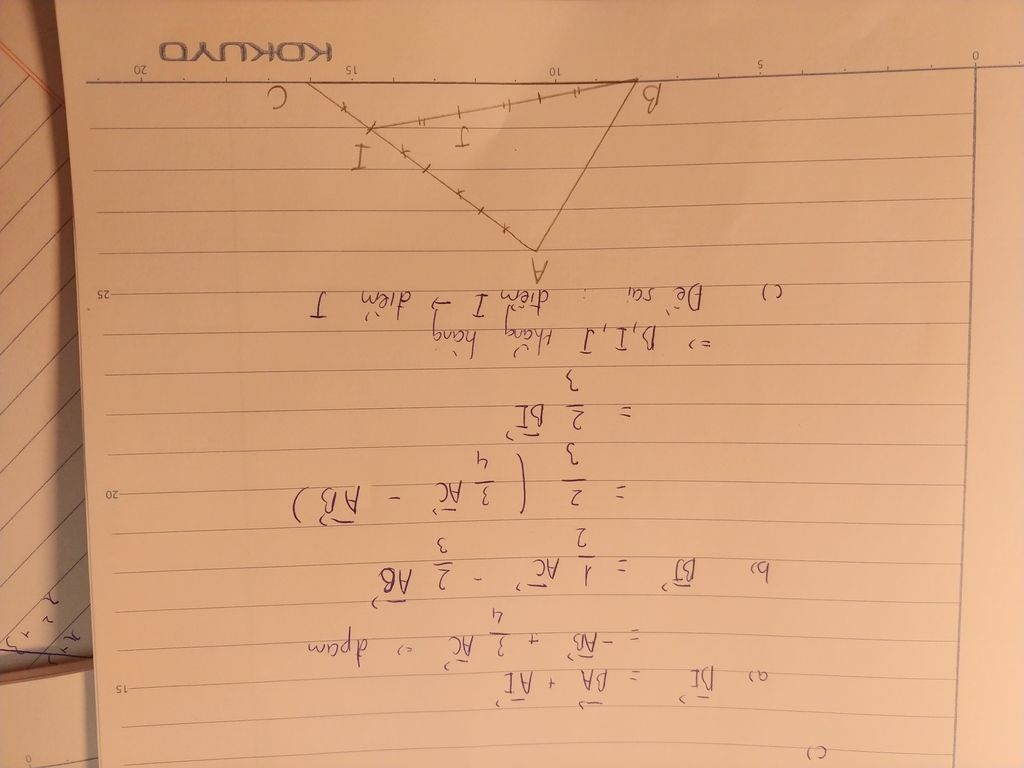 c)
a) BI→ = BA→ + AI→
= -AB→ + 3/4 AC→ => đpcm
b) BJ→ = 1/2 AC→ - 2/3 AB→
= 2/3 ( 3/4 AC→ - AB→ )
= 2/3 BI→
=> B, I, J thẳng hàng
c) Đề sai : điểm I → điểm J
A
I
J
B
C
0 5 10 15 20
15
20
25
0
KOKUYO